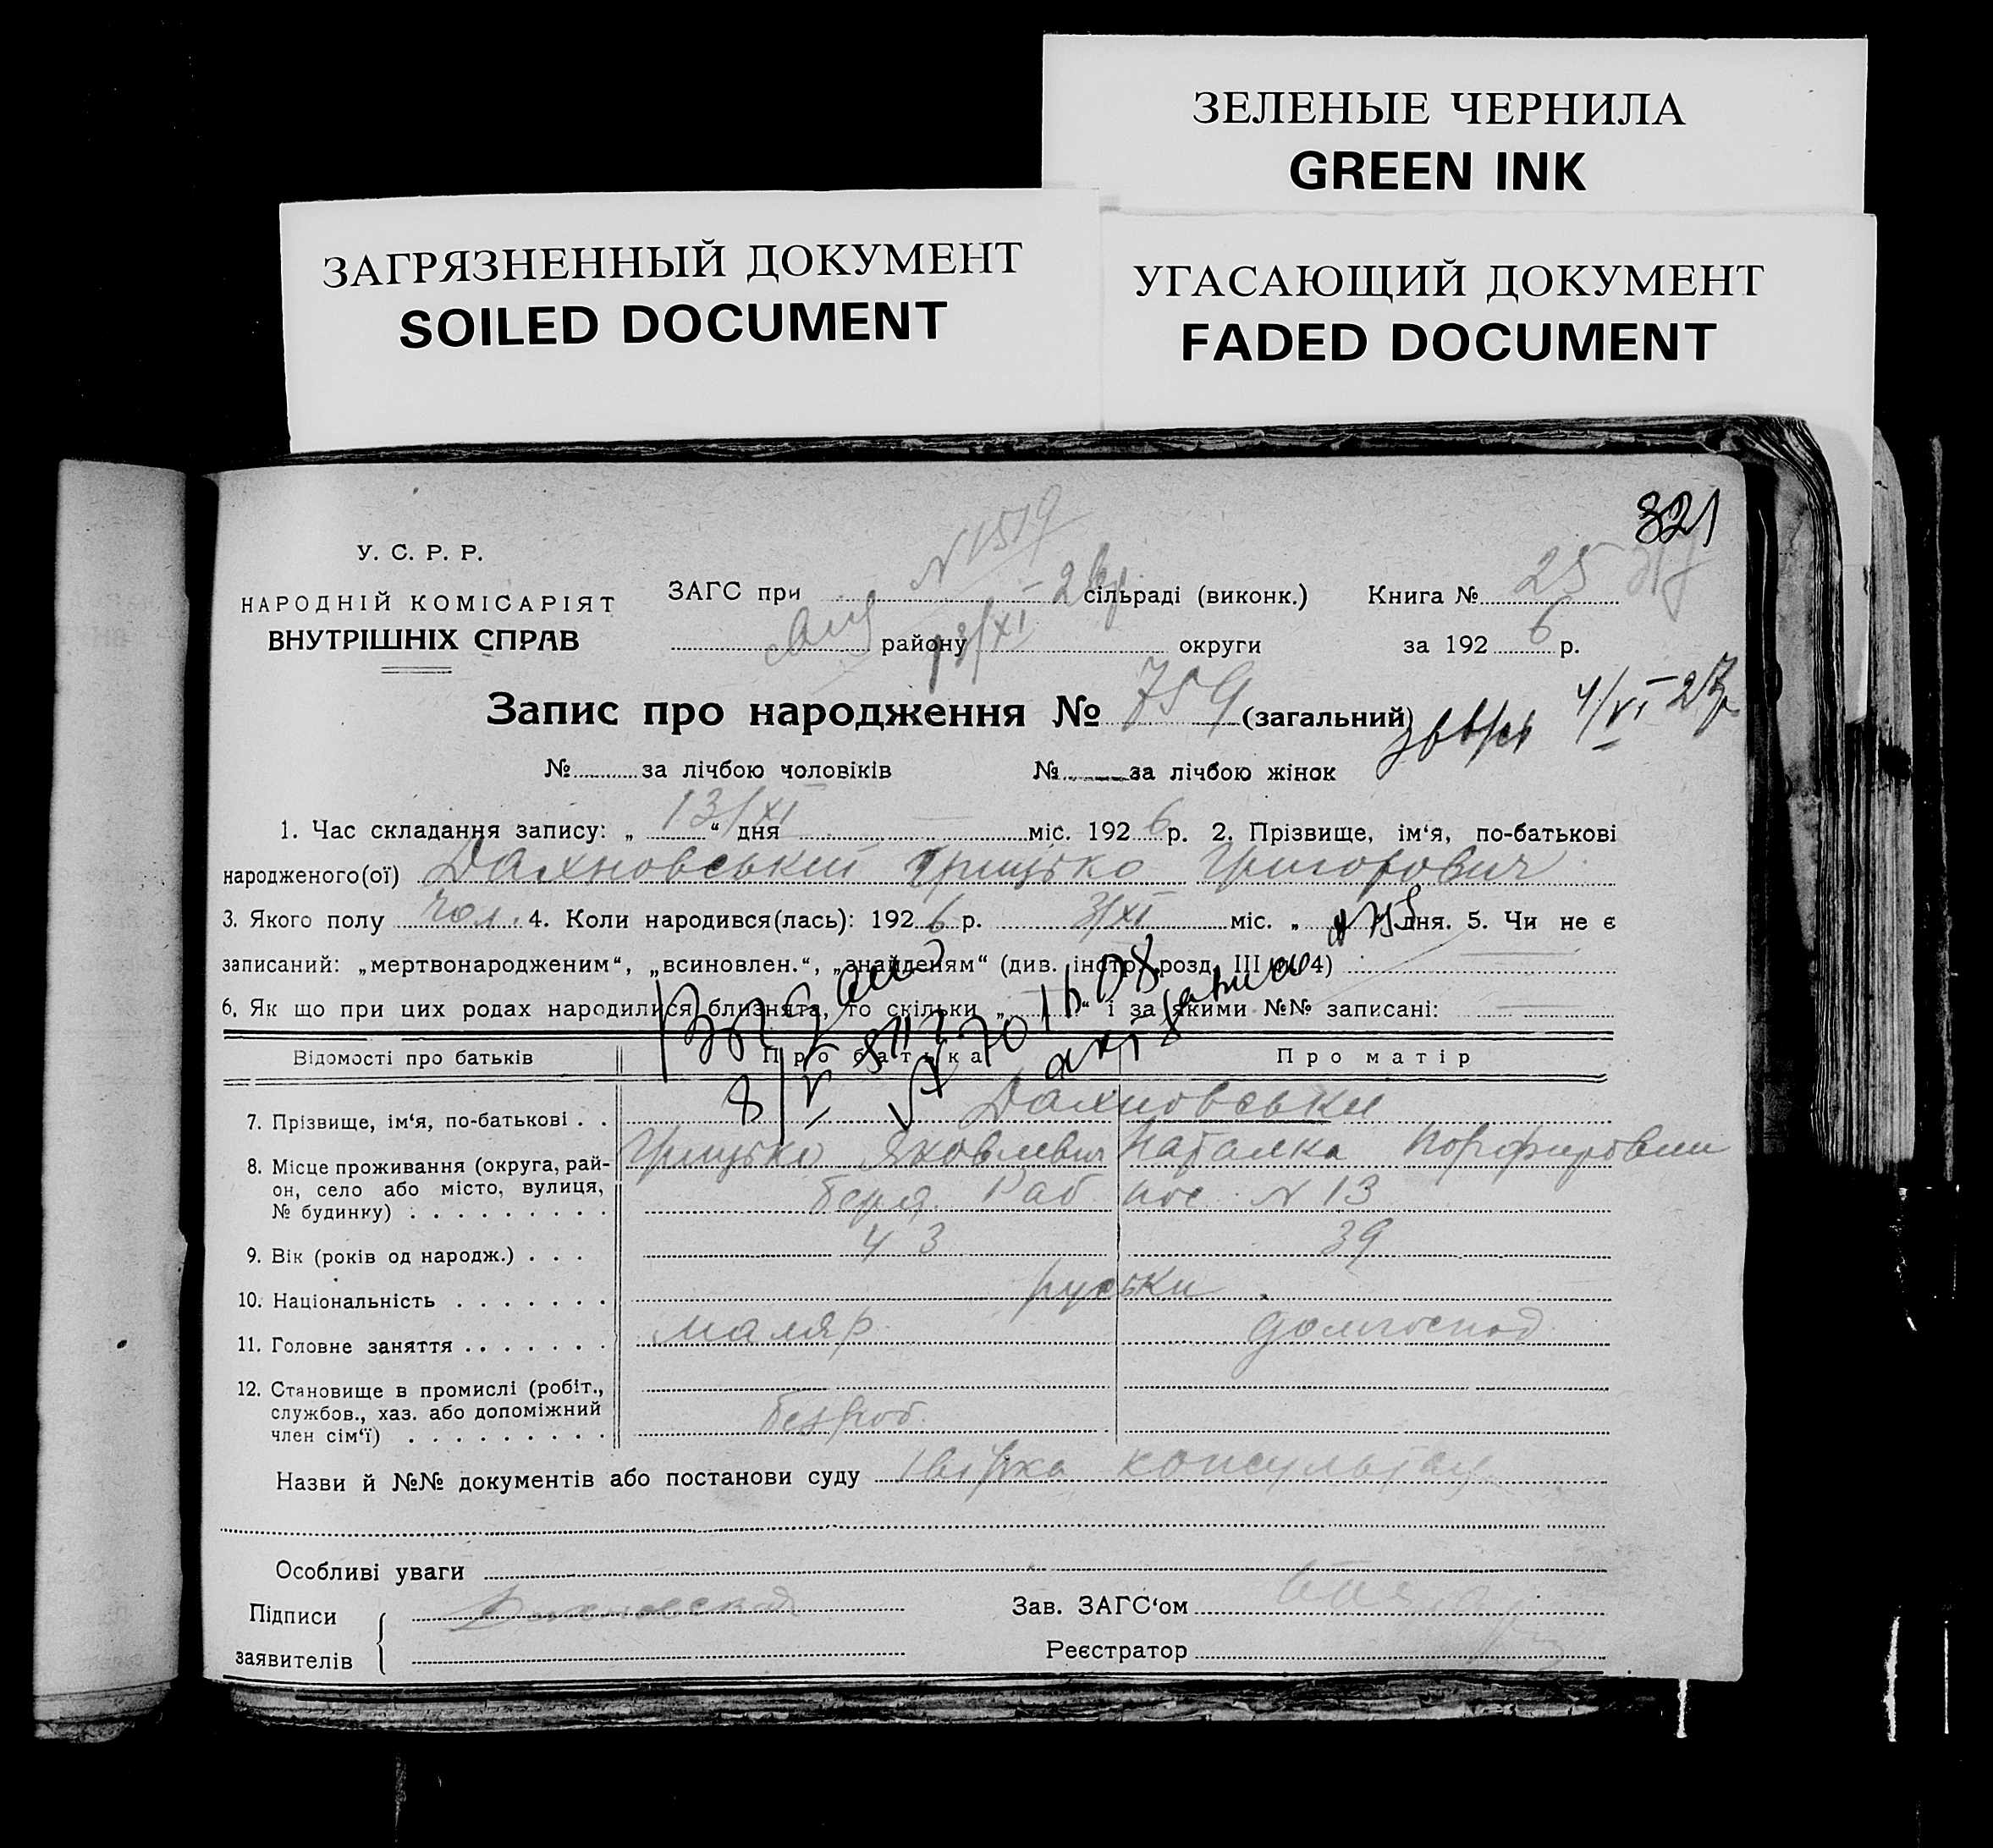 ЗЕЛЕНЫЕ ЧЕРНИЛА
GREEN INK
ЗАГРЯЗНЕННЫЙ ДОКУМЕНТ
SOILED DOCUMENT
УГАСАЮЩИЙ ДОКУМЕНТ
FADED DOCUMENT
321
У. С. Р. Р.
НАРОДНІЙ КОМІСАРІЯТ
ВНУТРІШНІХ СПРАВ
N 1519
ЗАГС при сільраді (виконк.) Книга № 25
району 13/XI округи за 192 6 р.
Запис про народження № 759 (загальний)
4/VI-27р
№ за лічбою чоловіків № за лічбою жінок
1. Час складання запису: „ 13/XI “ дня — міс. 192 6 р. 2. Прізвище, ім‘я, по-батькові
народженого(ої) Дахновський Грицько Григорович
3. Якого полу чол. 4. Коли народився(лась): 192 6 р. 3/XI міс. „ дня. 5. Чи не є
записаний: „мертвонародженим“, „всиновлен.“, „знайденям“ (див. інстр. розд. III 4)
6. Як що при цих родах народилися близнята, то скільки „ “ і за якими №№ записані:
Відомості про батьків Про батька Про матір
7. Прізвище, ім‘я, по-батькові . . Дахновськи
Грицько Яковлевич Наталка Порфировни
8. Місце проживання (округа, рай-
он, село або місто, вулиця,
№ будинку) . . . . . . . . . Раб пос. N 13
9. Вік (років од народж.) . . . 43 39
10. Національність . . . . . . . руськи
11. Головне заняття . . . . . . . маляр домгоспод
12. Становище в промислі (робіт.,
службов., хаз. або допоміжний
член сім‘ї) . . . . . . . . . безроб.
Назви й №№ документів або постанови суду консульта
Особливі уваги
Підписи Дахновская Зав. ЗАГС‘ом
заявителів Реєстратор